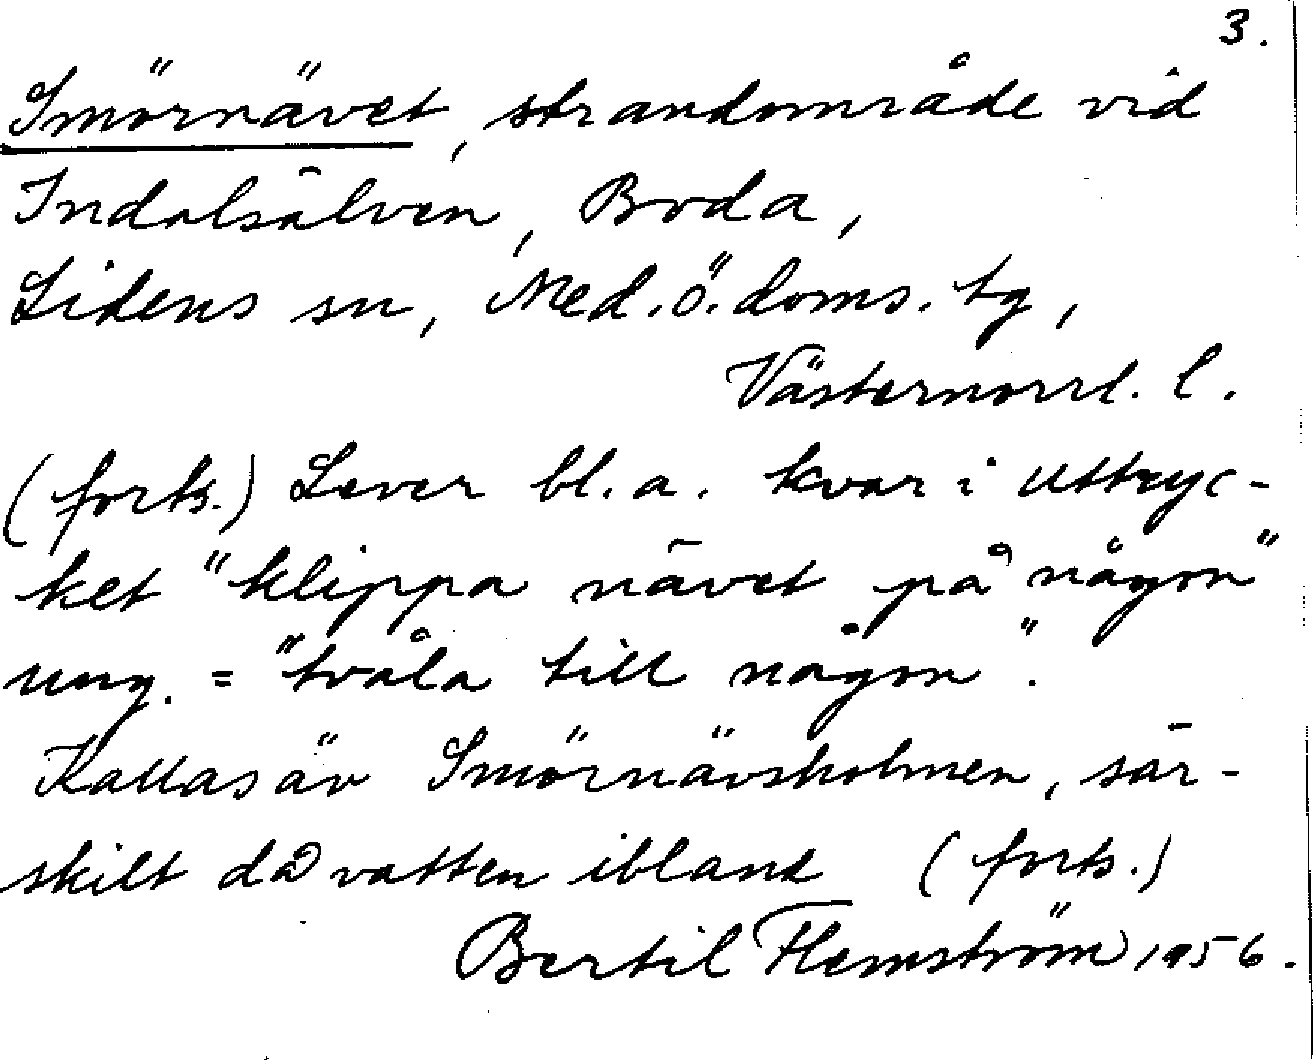 3.
Smörnävet, strandområde vid
Indalsälven, Boda,
Lidens sn, Med.ö.doms. tg,
Västernorrl. l.
(forts.) Lever bl.a. kvar i uttryc-
ket "klippa nävet på någon"
ung. = "tvåla till någon".
Kallas äv Smörnävsholmen, sär-
skilt då vatten ibland (forts.)
Bertil Flemström 1956.